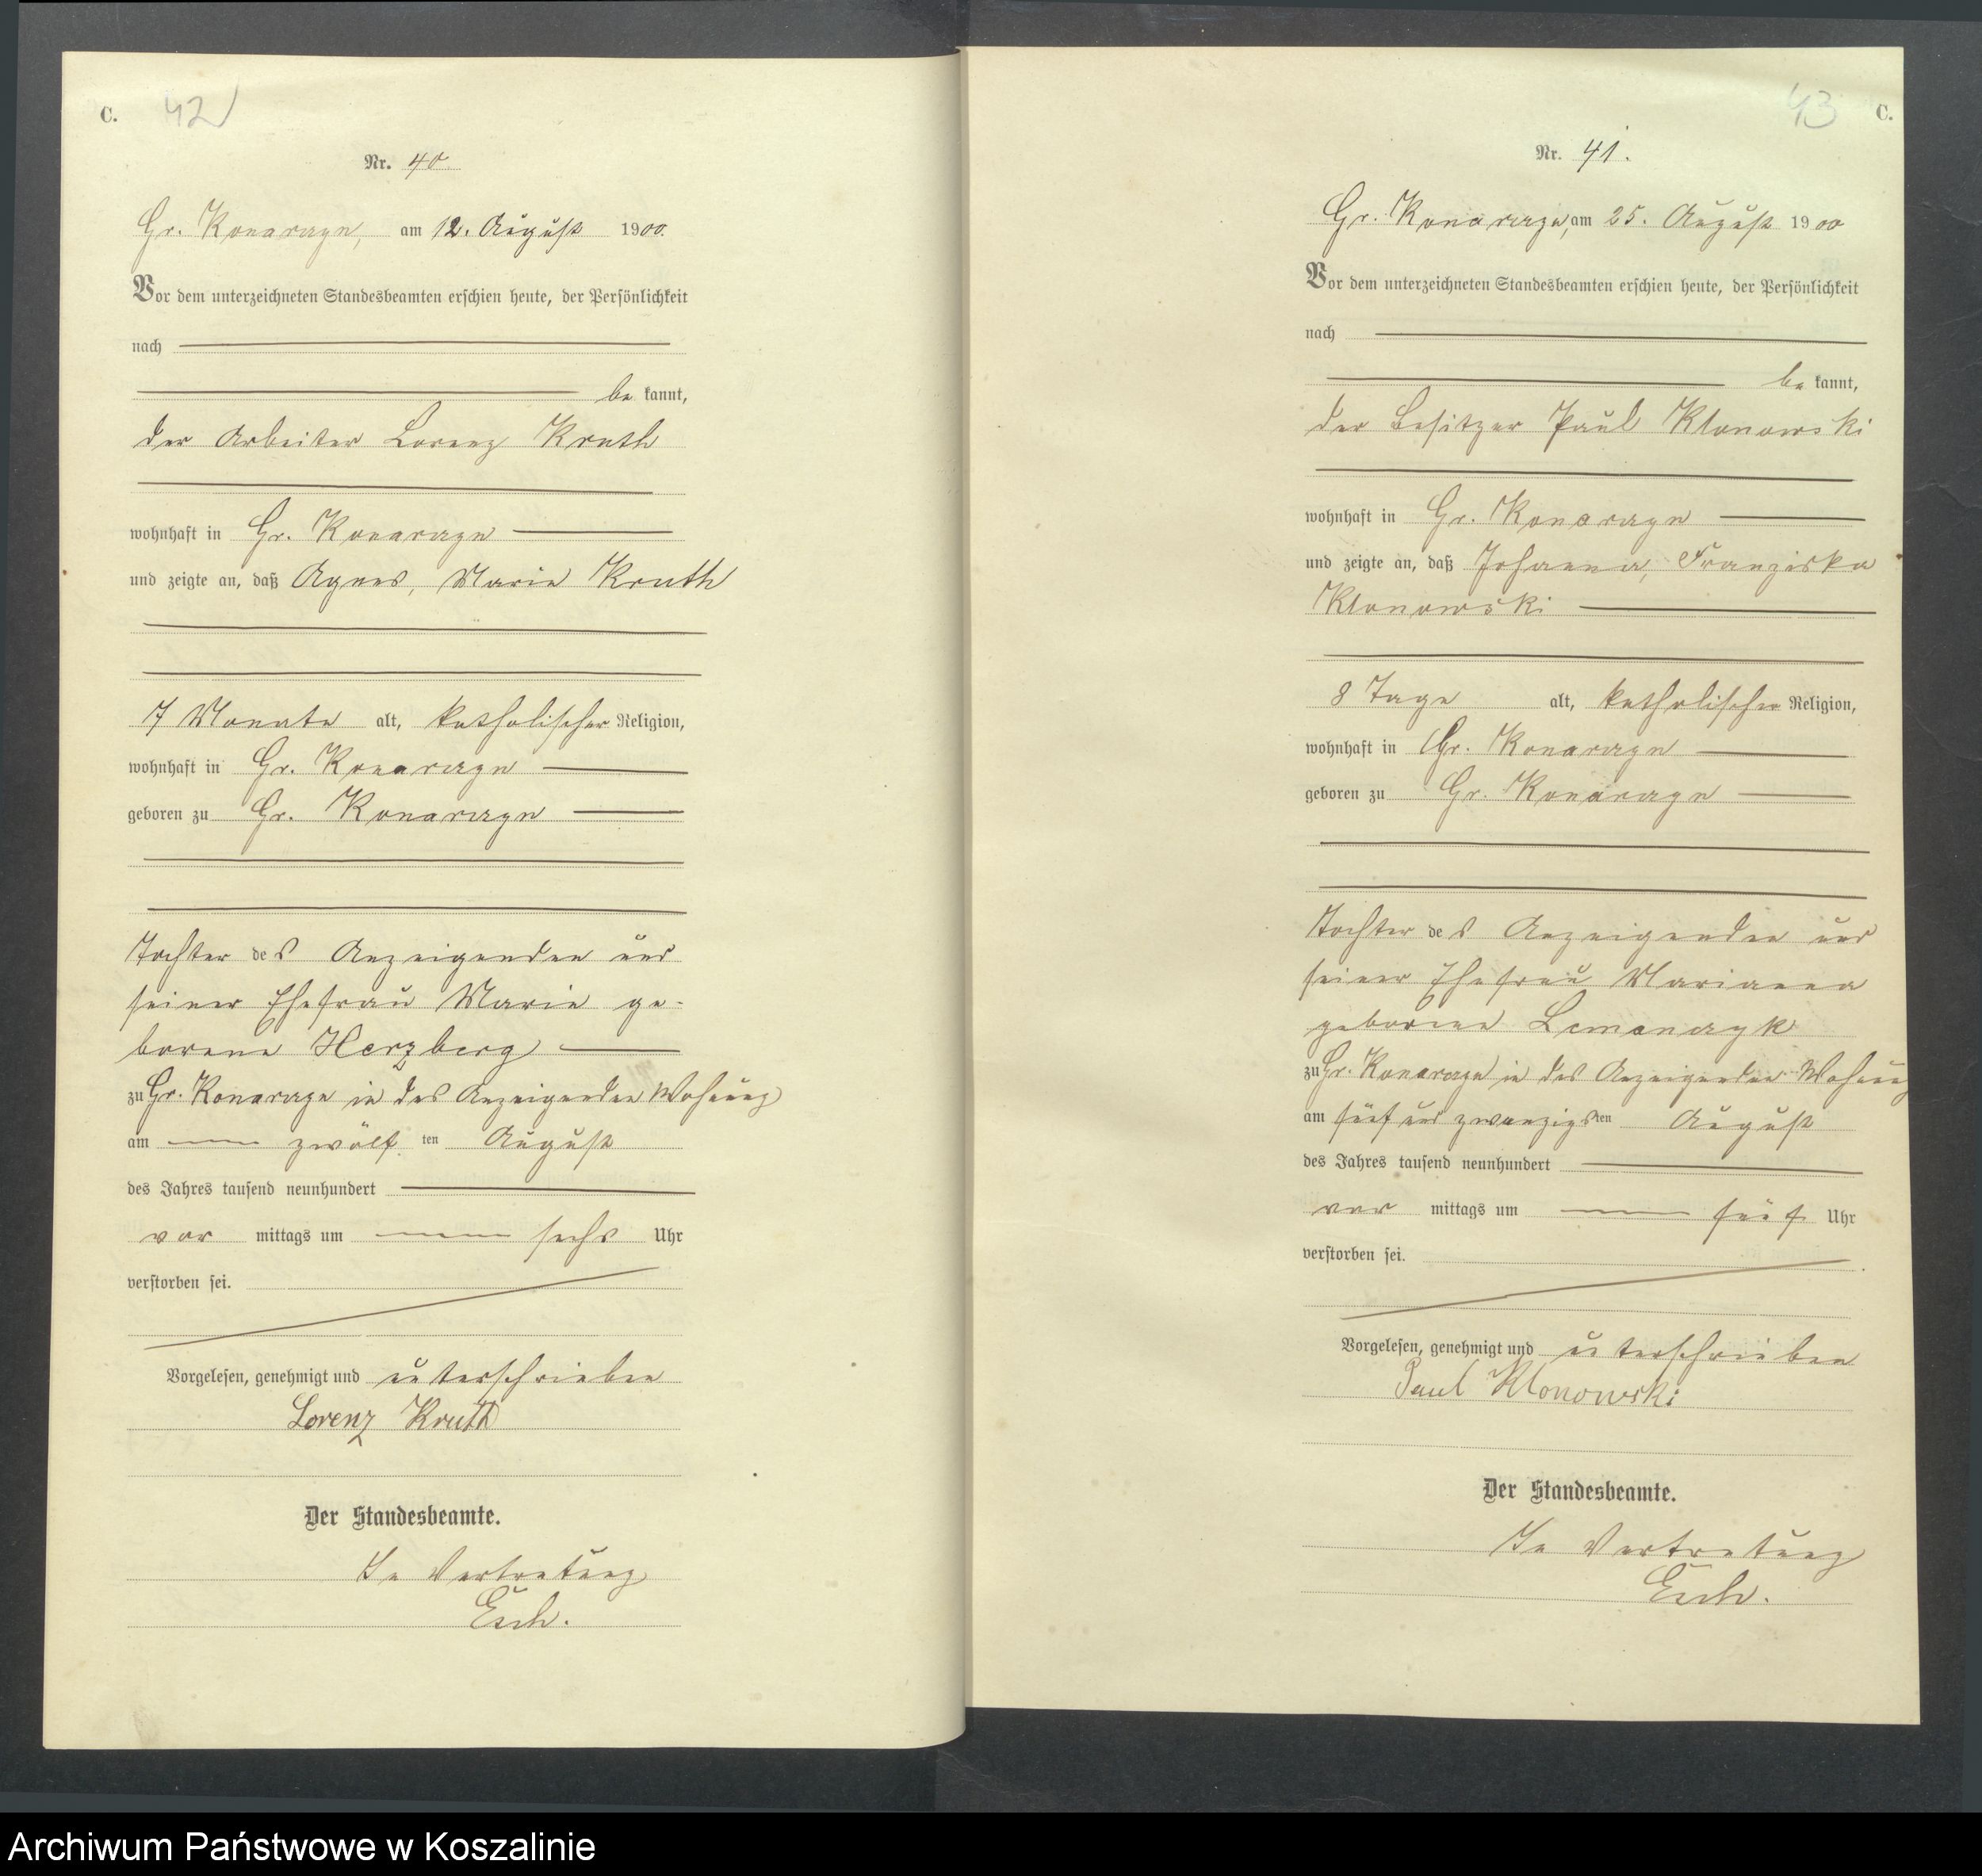 C. 42
Nr. 40
Gr. Konarzyn, am 12. August 1900.
Vor dem unterzeichneten Standesbeamten erschien heute, der Persönlichkeit
nach
be kannt,
der Arbeiter Lorenz Kruth
wohnhaft in Gr. Konarzyn
und zeigte an, daß Agnes, Marie Kruth
7 Monate alt, katholischer Religion,
wohnhaft in Gr. Konarzyn
geboren zu Gr. Konarzyn
Tochter des Anzeigenden und
seiner Ehefrau Marie ge-
borene Herzberg
zu Gr. Konarzyn in des Anzeigenden Wohnung
am zwölf ten August
des Jahres tausend neunhundert
vor mittags um sechs Uhr
verstorben sei.
Vorgelesen, genehmigt und unterschrieben
Lorenz Kruth
Der Standesbeamte.
In Vertretung
Esch.
43 C.
Nr. 41.
Gr. Konarzyn, am 25. August 1900
Vor dem unterzeichneten Standesbeamten erschien heute, der Persönlichkeit
nach
be kannt,
der Besitzer Paul Klonowski
wohnhaft in Gr. Konarzyn
und zeigte an, daß Johanna, Franziska
Klonowski
8 Tage alt, katholischer Religion,
wohnhaft in Gr. Konarzyn
geboren zu Gr. Konarzyn
Tochter des Anzeigenden und
seiner Ehefrau Marianna
geborene Lemanczyk
zu Gr. Konarzyn in des Anzeigenden Wohnung
am fünf und zwanzigsten August
des Jahres tausend neunhundert
vor mittags um fünf Uhr
verstorben sei.
Vorgelesen, genehmigt und unterschrieben
Paul Klonowski
Der Standesbeamte.
In Vertretung
Esch.
Archiwum Państwowe w Koszalinie